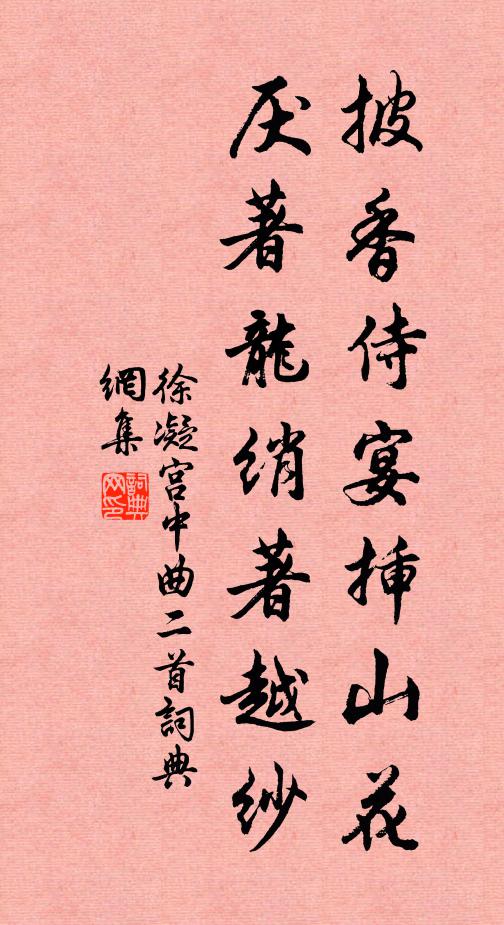 披香侍宴揷山花
厌著龍綃著越紗
徐凝宫中曲二首詞典
網集
詞典
网印